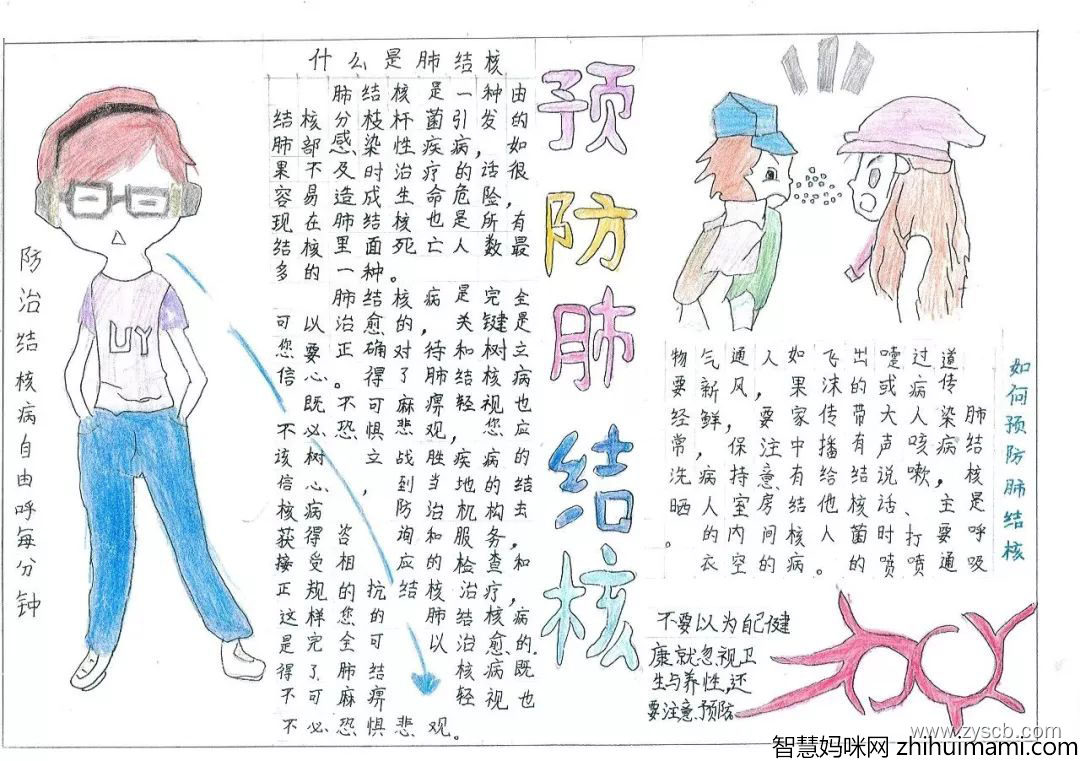 什么是肺结核
肺结核是一种由
结核分枝杆菌引发的
肺部感染性疾病，如
果不及时治疗的话很
容易造成生命危险，
现在肺结核也是所有
结核里面死亡人数最
多的一种。
肺结核病是完全
可以治愈的，关键是
您要正确对待和树立
信心。得了肺结核病
既不可麻痹轻视也
不必恐惧悲观，您应
该树立战胜疾病的
信心，到当地的结
核病防治机构去
获得咨询和服务，
接受相应的检查和
正规的抗结核治疗，
这样您的肺结核病
是完全可以治愈的.
得了肺结核病既
不可麻痹轻视也
不必恐惧悲观。
防治结核病自由呼每分钟
预防肺结核
如何预防肺结核
肺结核是呼吸
道传染病，主要通
过病人咳嗽、打喷
嚏或大声说话时喷
出的带有结核菌的
飞沫传播给他人。
如果家中有结核病
人，要注意房间的
通风，保持室内空
气新鲜，病人的衣
物要经常洗晒。
不要以为自己健
康就忽视卫
生与养性,还
要注意预防。
UY
www.zyscb.com
智慧妈咪网 zhihuimami.com